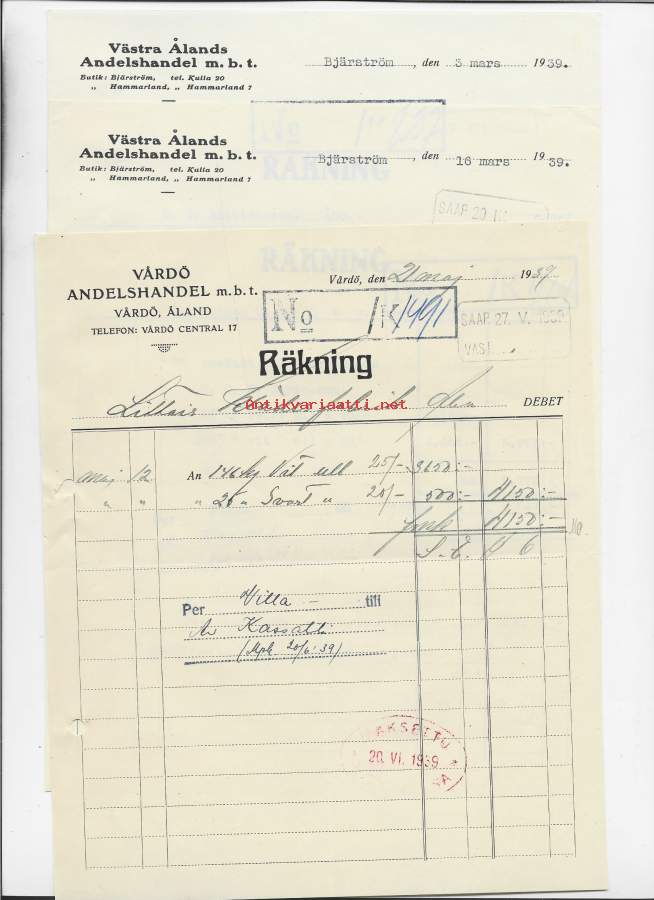 Västra Ålands
Andelshandel m. b. t.
Butik: Bjärström, tel. Kulla 20
„ Hammarland, „ Hammarland 7
Bjärström , den 3 mars 1939.
Västra Ålands
Andelshandel m. b. t.
Butik: Bjärström, tel. Kulla 20
„ Hammarland, „ Hammarland 7
Bjärström , den 16 mars 1939.
RÄKNING
SAAP. 20
RÄKNING
VÅRDÖ
ANDELSHANDEL m. b. t.
VÅRDÖ, ÅLAND
TELEFON: VÅRDÖ CENTRAL 17
Vårdö, den 21 maj 1939
No /K 1491
SAAP. 27. V. 1939
VAST
Räkning
Antikvariaatti.net
DEBET
maj 12 An 146 kg Vit ull 25/- 3650:-
„ „ „ 25 „ Svart „ 20/- 500:- 4150:-
fmk 4150:-
S. E. & O.
Per Villa - till
Av Kassan
(Mph 20/6 39)
MAKSETTU
20. VI. 1939